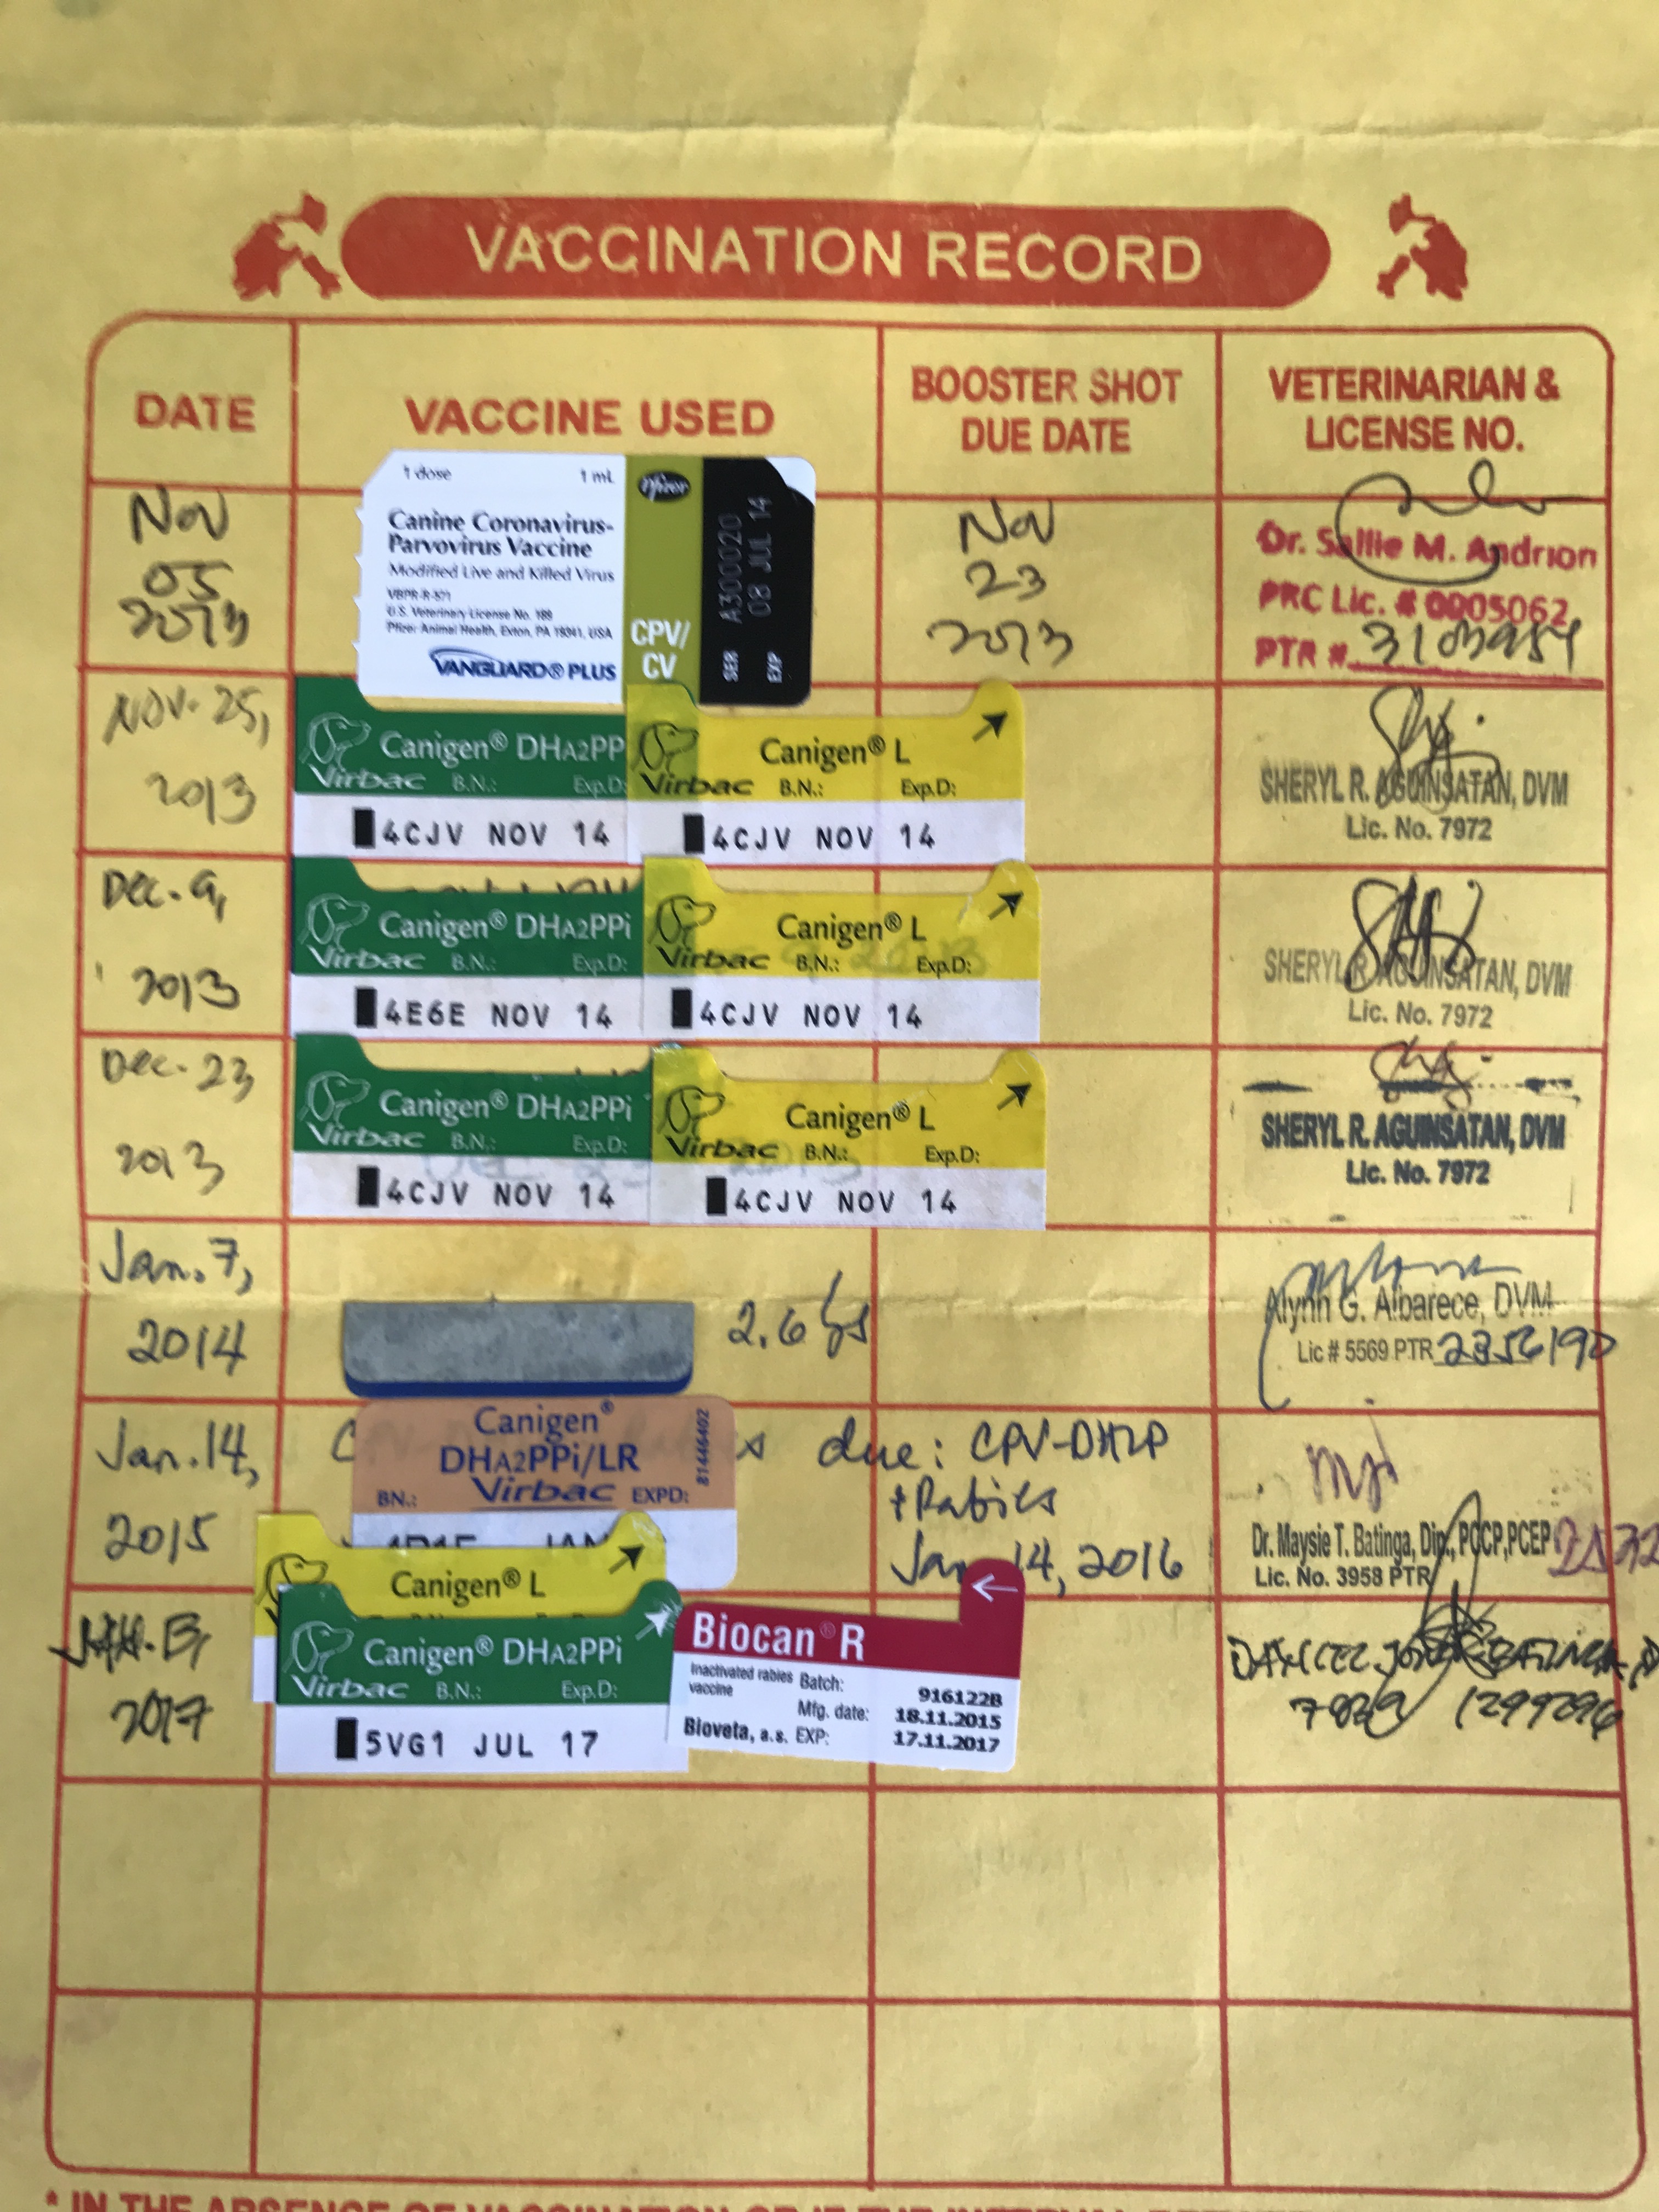 VACCINATION RECORD
DATE
VACCINE USED
BOOSTER SHOT
DUE DATE
VETERINARIAN &
LICENSE NO.
Nov
05
2013
1 dose 1 mL
Canine Coronavirus-
Parvovirus Vaccine
Modified Live and Killed Virus
VBPR-R-571
U.S. Veterinary License No. 189
Pfizer Animal Health, Exton, PA 19341, USA
VANGUARD® PLUS
Pfizer
CPV/
CV
SER A3000020
EXP 08 JUL 14
Nov
23
2013
Dr. Sallie M. Andrion
PRC Lic. # 0005062
PTR #
Nov. 25,
2013
Canigen® DHA2PP
Virbac B.N.: Exp.D:
4CJV NOV 14
Canigen® L
Virbac B.N.: Exp.D:
4CJV NOV 14
SHERYL R. AGUINSATAN, DVM
Lic. No. 7972
Dec. 9,
2013
Canigen® DHA2PPi
Virbac B.N.: Exp.D:
4E6E NOV 14
Canigen® L
Virbac B.N.: Exp.D:
4CJV NOV 14
SHERYL R. AGUINSATAN, DVM
Lic. No. 7972
Dec. 23
2013
Canigen® DHA2PPi
Virbac B.N.: Exp.D:
4CJV NOV 14
Canigen® L
Virbac B.N.: Exp.D:
4CJV NOV 14
SHERYL R. AGUINSATAN, DVM
Lic. No. 7972
Jan. 7,
2014
2.6
Alynn G. Albarece, DVM
Lic # 5569 PTR 2356190
Jan. 14,
2015
Canigen®
DHA2PPi/LR
Virbac
BN.: EXPD:
81446402
JAN
due: CPV-DH2LP
+ Rabies
Jan 14, 2016
Dr. Maysie T. Batinga, Dip., PCCP, PCEP
Lic. No. 3958 PTR
2017
Canigen® L
Canigen® DHA2PPi
Virbac B.N.: Exp.D:
5VG1 JUL 17
Biocan® R
Inactivated rabies
vaccine
Batch: 916122B
Mfg. date: 18.11.2015
Bioveta, a.s. EXP: 17.11.2017
1299296
* IN THE ABSENCE OF VACCINATION OR IF THE INTERVAL